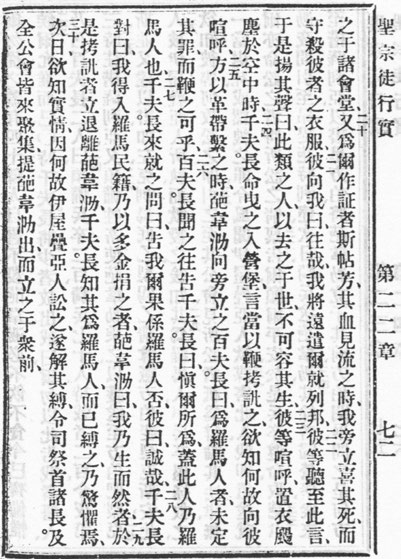 聖宗徒行實 第二二章 七二
之于諸會堂、二十又爲爾作証者斯帖芳、其血見流之時、我旁立喜其死、而
守殺彼者之衣服、二一彼向我曰、往哉、我將遠遣爾就列邦、二二彼等聽至此言、
于是揚其聲曰、此類之人、以去之于世、不可容其生、二三彼等喧呼、置衣、颺
塵於空中時、二四千夫長命曳之入營堡、言當以鞭拷訊之、欲知何故向彼
喧呼、二五方以革帶繫之時、葩韋泐向旁立之百夫長曰、爲羅馬人者、未定
其罪而鞭之可乎、二六百夫長聞之、往告千夫長曰、愼爾所爲、蓋此人乃羅
馬人也、二七千夫長來就之、問曰、告我、爾果係羅馬人否、彼曰、誠哉、二八千夫長
對曰、我得入羅馬民籍、乃以多金捐之者、葩韋泐曰、我乃生而然者、二九於
是拷訊者立退離葩韋泐、千夫長知其爲羅馬人、而已縛之、乃驚懼焉、
三十次日欲知實情、因何故伊屋疊亞人訟之、遂解其縛、令司祭首諸長、及
全公會皆來聚集、提葩韋泐出、而立之于衆前、